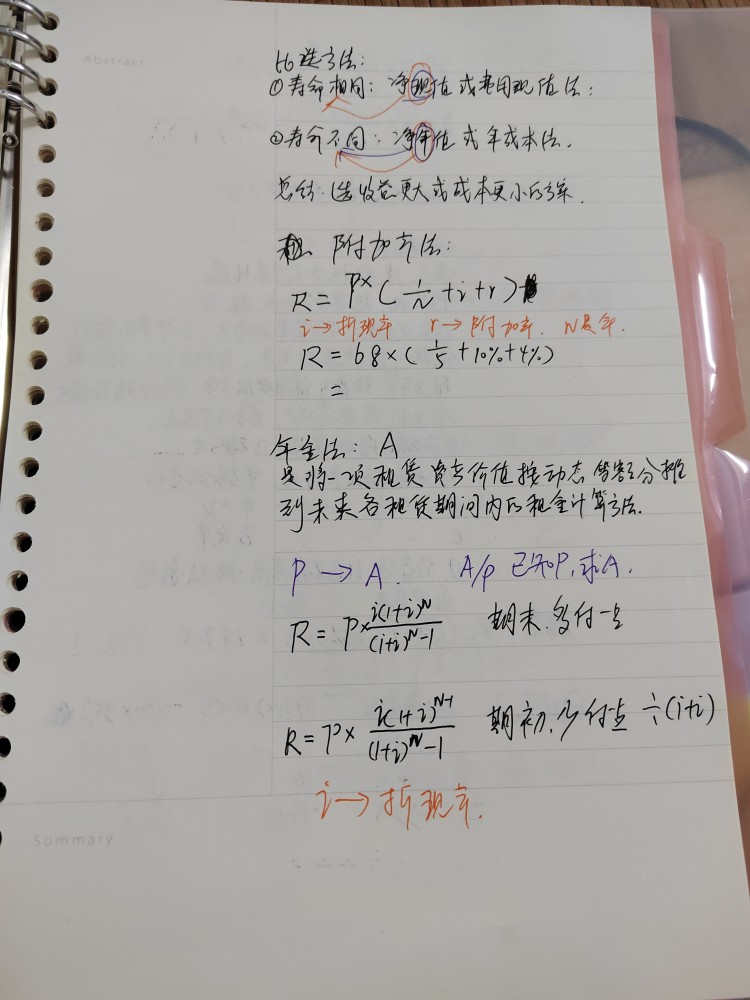 Abstract
比选方法:
①寿命相同:净现值或费用现值法:
②寿命不同:净年值或年成本法.
总结:选收益更大或成本更小的方案.
附加率法:
R = P×(1/N + i + r)
i→折现率 r→附加率. N是年.
R = 68×(1/5 + 10% + 4%)
=
年金法: A
是将一项租赁资产价值按动态等额分摊
到未来各租赁期间内的租金计算方法.
P → A. A/P 已知P,求A.
R = P× i(1+i)^N / (1+i)^N - 1 期末.多付一点
R = P× i(1+i)^N-1 / (1+i)^N - 1 期初.少付点 ÷(1+i)
i→折现率.
Summary